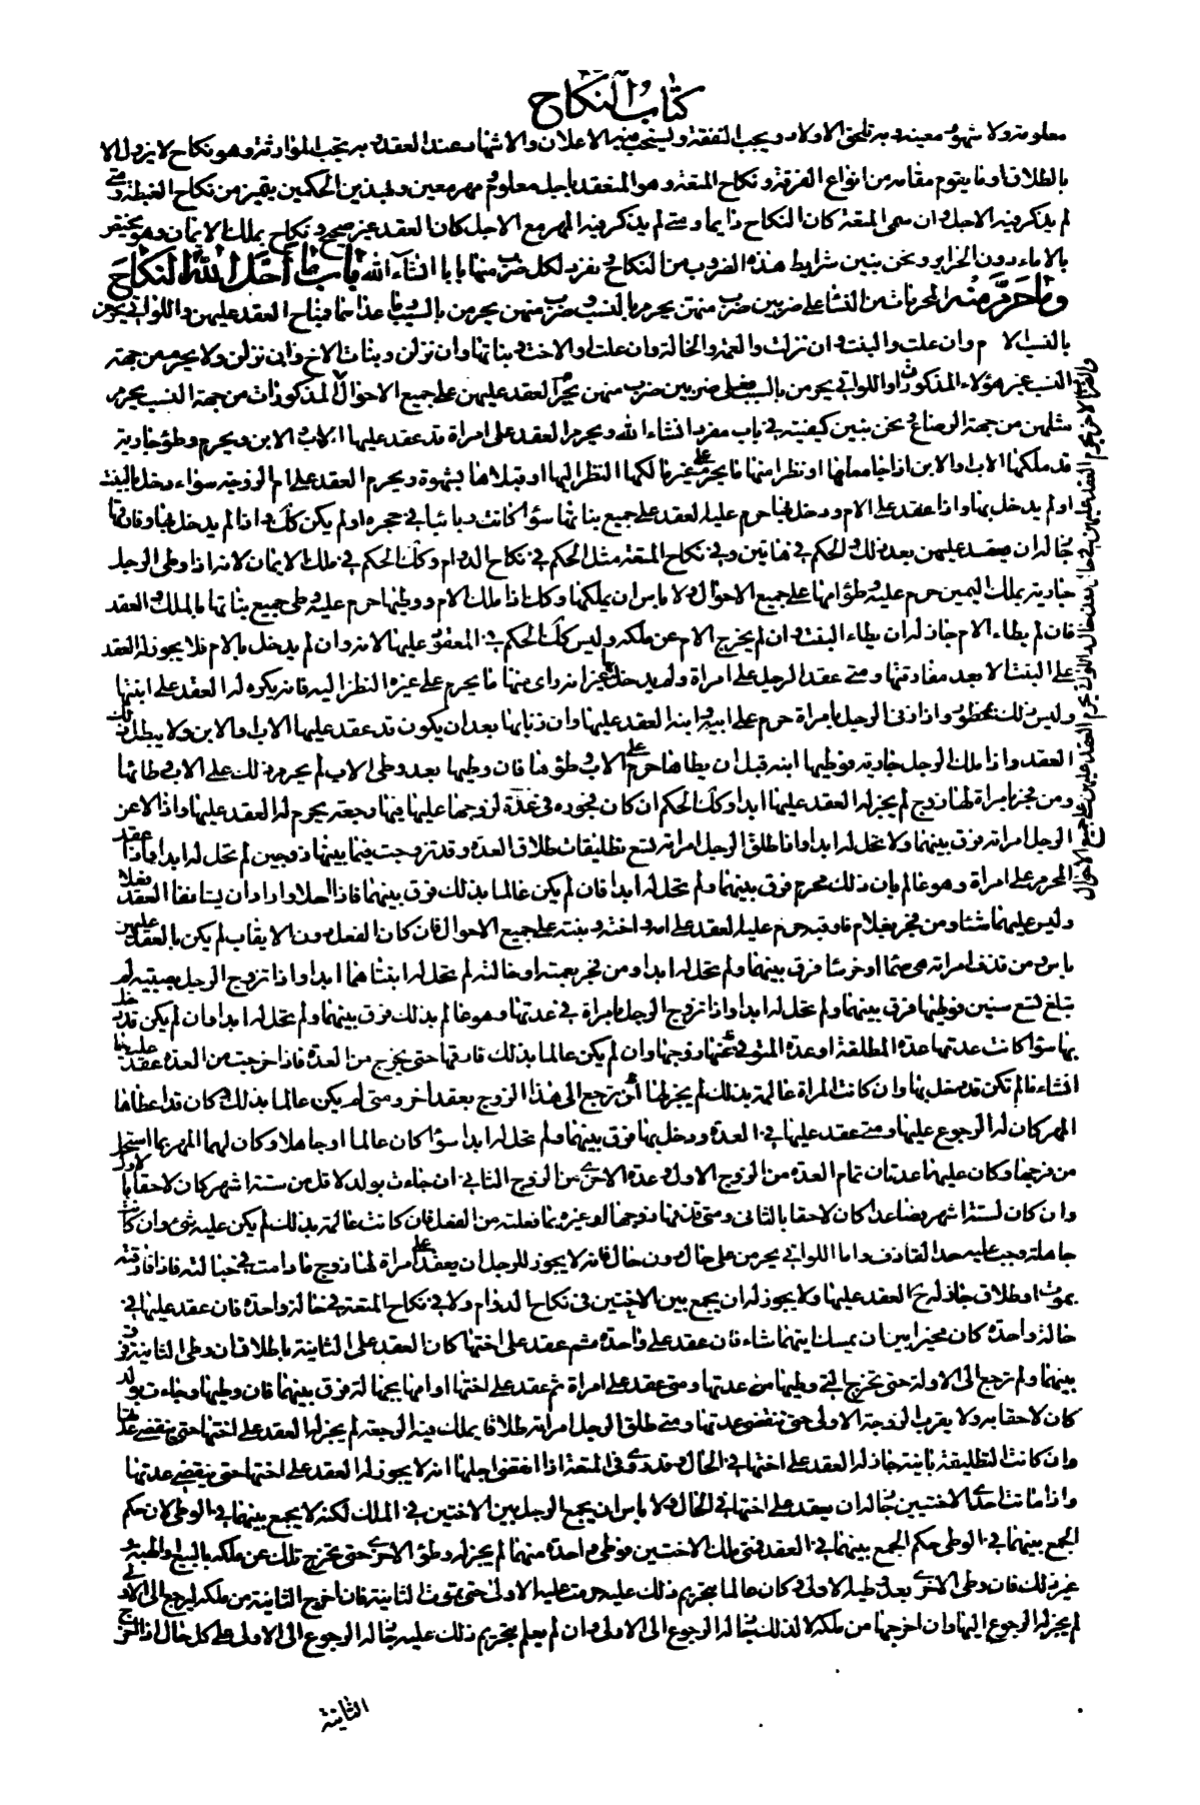 كتاب النكاح
معلومة ولا شهود معينة به تلحق الاولاد ويجب النفقة ويستحب فيه الاعلان والاشهاد عند العقد وبه يجب الموارثة وهو نكاح لا يزول الا
بالطلاق او ما يقوم مقامه من انواع الفرقة ونكاح المتعة وهو المنعقد باجل معلوم ومهر معين وبهذين الحكمين يتميز من نكاح الغبطة ومتى
لم يذكر فيه الاجل وان سمى المتعة كان النكاح دايما ومتى لم يذكر فيه المهر مع الاجل كان العقد غير صحيح ونكاح بملك الايمان وهو يختص
بالاماء دون الحراير ونحن نبين شرايط هذه الضروب من النكاح ونفرد لكل ضرب منها بابا انشاء الله باب ما أحل الله النكاح
وما حرم منه المحرمات من النساء على ضربين ضرب منهن يحرم بالنسب وضرب منهن يحرمن بالسبب وما عداهما فمباح العقد عليهن واللواتي يحرمن
بالنسب الام وان علت والبنت وان نزلت والعمة والخالة وان علتا والاخت وبناتها وان نزلن وبنات الاخ وان نزلن ولا يحرم من جهة
النسب غير هؤلاء المذكورات واللواتي يحرمن بالسبب فعلى ضربين ضرب منهن يحرم العقد عليهن على جميع الاحوال المذكورات من جهة النسب يحرم
مثلهن من جهة الرضاع ونحن نبين كيفيته في باب مفرد انشاء الله ويحرم العقد على امراة قد عقد عليها الاب والابن ويحرم وطؤ جارية
قد ملكها الاب والابن اذا جامعاها او نظرا منها ما يحرم على غير مالكها النظر اليها او قبلاها بشهوة ويحرم العقد على ام الزوجة سواء دخل بالبنت
او لم يدخل بها واذا عقد على الام ودخل بها حرم عليه العقد على جميع بناتها سواء كانت ربائبا في حجره او لم يكن كذلك واذا لم يدخل بها وفارقها
جاز له ان يعقد عليهن بعد ذلك والحكم في هاتين وفي نكاح المتعة مثل الحكم في نكاح الدوام وكذلك الحكم في ملك الايمان لانه اذا وطى الرجل
جارية بملك اليمين حرم عليه وطؤ امها على جميع الاحوال ولا باس ان يملكها وكذلك اذا ملك الام ووطيها حرم عليه وطى جميع بناتها بالملك والعقد
فان لم يطاء الام جاز له ان يطاء البنت وان لم يخرج الام عن ملكه وليس كذلك الحكم في المعقود عليها لانه وان لم يدخل بالام فلا يجوز له العقد
على البنت الا بعد مفارقتها ومتى عقد الرجل على امراة ولم يدخل بها غير انه راى منها ما يحرم على غيره النظر اليه فانه يكره له العقد على ابنتها
وليس ذلك بمحظور واذا زنى الرجل بامراة حرم على ابيه وابنه العقد عليها وان زنا بها بعد ان يكون قد عقد عليها الاب والابن ولا يبطل ذلك
العقد واذا ملك الرجل جارية فوطيها ابنه قبل ان يطاها حرم على الاب وطؤها فان وطيها بعد وطى الاب لم يحرم ذلك على الاب وطائها
ومن فجر بامراة لها زوج لم يجز له العقد عليها ابدا وكذلك الحكم ان كان فجوره في عدة لزوجها عليها فيها رجعة يحرم له العقد عليها واذا لاعن
الرجل امراته فرق بينهما ولا تحل له ابدا واذا طلق الرجل امراته تسع تطليقات طلاق العدة وقد تزوجت فيما بينها زوجين لم تحل له ابدا واذا عقد
المحرم على امراة وهو عالم بان ذلك محرم فرق بينهما ولم تحل له ابدا فان لم يكن عالما بذلك فرق بينهما فاذا احلا وارادا ان يستانفا العقد فعلا
وليس عليهما شئ ومن فجر بغلام فاوقبه حرم عليه العقد على امه واخته وبنته على جميع الاحوال فان كان الفعل دون الايقاب لم يكن بالعقد عليهن
باس ومن قذف امراته صما او خرسا فرق بينهما ولم تحل له ابدا ومن فجر بعمته او خالته لم تحل له ابنتاهما ابدا واذا تزوج الرجل بصبية لم
تبلغ تسع سنين فوطيها فرق بينهما ولم تحل له ابدا واذا تزوج الرجل بامراة في عدتها وهو عالم بذلك فرق بينهما ولم تحل له ابدا وان لم يكن قد دخل
بها سواء كانت عدتها عدة المطلقة او عدة المتوفى عنها زوجها وان لم يكن عالما بذلك فارقها حتى يخرج من العدة فاذا خرجت من العدة عقد عليها
انشاء ما لم تكن قد دخل بها وان كانت المراة عالمة بذلك لم يجز لها أن ترجع الى هذا الزوج بعقد اخر ومتى لم يكن عالما بذلك وكان قد اعطاها
المهر كان له الرجوع عليها ومتى عقد عليها في العدة ودخل بها فرق بينهما ولم تحل له ابدا سواء كان عالما او جاهلا وكان لها المهر بما استحل
من فرجها وكان عليها عدتان تمام العدة من الزوج الاول وعدة الاخرى من الزوج الثاني ان جاءت بولد لاقل من ستة اشهر كان لاحقا بالاول
وان كان لستة اشهر فصاعدا كان لاحقا بالثاني ومتى قذفها زوجها او غيره بما فعلته من الفعل فان كانت عالمة بذلك لم يكن عليه شئ وان كانت
جاهلة وجب عليه حد القاذف واما اللواتي يحرمن على حال دون حال فانه لا يجوز للرجل ان يعقد على امراة لها زوج ما دامت في حباله فاذا فارقته
بموت او طلاق جاز له العقد عليها ولا يجوز له ان يجمع بين الاختين في نكاح الدوام ولا في نكاح المتعة في حالة واحدة فان عقد عليها في
حالة واحدة كان مخيرا بين ان يمسك ايتهما شاء فان عقد على واحدة ثم عقد على اختها كان العقد على الثانية باطلا فان وطى الثانية فرق
بينهما ولم ترجع الى الاولة حتى تخرج التي وطيها من عدتها ومتى عقد على امراة ثم عقد على اختها او امها بجهالة فرق بينهما فان وطيها وجاءت بولد
كان لاحقا به ولا يقرب الزوجة الاولى حتى تنقضي عدتها ومتى طلق الرجل امراته طلاقا يملك فيه الرجعة لم يجز له العقد على اختها حتى ينقضي عدتها
وان كانت التطليقة باينة جاز له العقد على اختها في الحال وقد روى في المتعة اذا انقضى اجلها انه لا يجوز له العقد على اختها حتى ينقضي عدتها
واذا ماتت احدى الاختين جاز له ان يعقد على اختها في الحال ولا باس ان يجمع الرجل بين الاختين في الملك لكنه لا يجمع بينهما في الوطى لان حكم
الجمع بينهما في الوطى حكم الجمع بينهما في العقد فمتى ملك الاختين فوطى واحدة منهما لم يجز له وطؤ الاخرى حتى تخرج تلك عن ملكه بالبيع والهبة و
غير ذلك فان وطى الاخرى بعد وطيه الاولى وكان عالما بتحريم ذلك عليه حرمت عليه الاولى حتى تموت الثانية فان اخرج الثانية من ملكه ليرجع الى الاولى
لم يجز له الرجوع اليها وان اخرجها من ملكه لا لذلك جاز له الرجوع الى الاولى وان لم يعلم بتحريم ذلك عليه جاز له الرجوع الى الاولى على كل حال اذا اخرج
الثانية
والضرب الاخر يحرم العقد عليهن في حال دون حال واللواتي يحرم العقد عليهن على جميع الاحوال